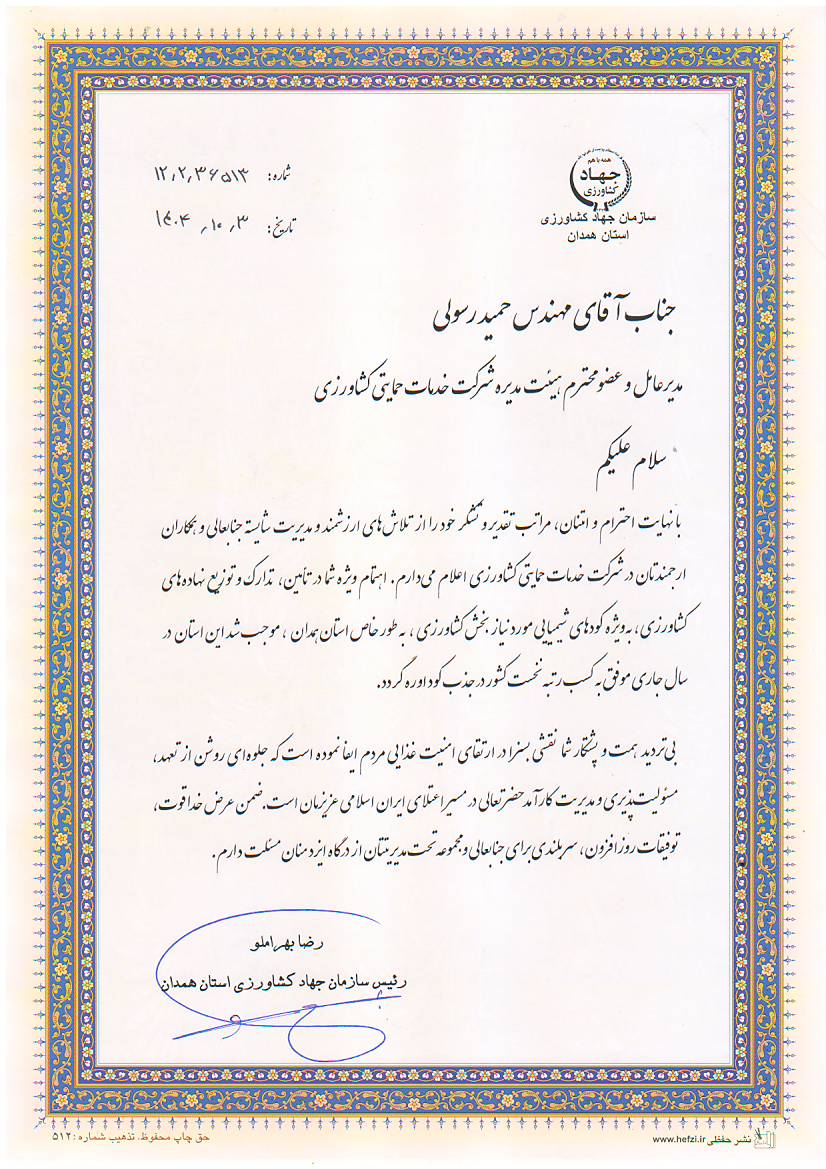 همه با هم
جهاد
کشاورزی
سازمان جهاد کشاورزی
استان همدان
شماره: ۱۲٫۲٫۳۶۵۱۳
تاریخ: ۱۴۰۴٫۱۰٫۳
جناب آقای مهندس حمید رسولی
مدیرعامل و عضو محترم هیئت مدیره شرکت خدمات حمایتی کشاورزی
سلام علیکم
با نهایت احترام و امتنان، مراتب تقدیر و تشکر خود را از تلاش‌های ارزشمند و مدیریت شایسته جنابعالی و همکاران
ارجمندتان در شرکت خدمات حمایتی کشاورزی اعلام می‌دارم. اهتمام ویژه شما در تأمین، تدارک و توزیع نهاده‌های
کشاورزی، به‌ویژه کودهای شیمیایی مورد نیاز بخش کشاورزی، به طور خاص استان همدان، موجب شد این استان در
سال جاری موفق به کسب رتبه نخست کشور در جذب کود اوره گردد.
بی‌تردید همت و پشتکار شما نقشی بسزا در ارتقای امنیت غذایی مردم ایفا نموده است که جلوه‌ای روشن از تعهد،
مسئولیت‌پذیری و مدیریت کارآمد حضرتعالی در مسیر اعتلای ایران اسلامی عزیزمان است. ضمن عرض خداقوت،
توفیقات روزافزون، سربلندی برای جنابعالی و مجموعه تحت مدیریتتان از درگاه ایزد منان مسئلت دارم.
رضا بهراملو
رئیس سازمان جهاد کشاورزی استان همدان
نشر حفظی www.hefzi.ir
حق چاپ محفوظ، تذهیب شماره: ۵۱۲